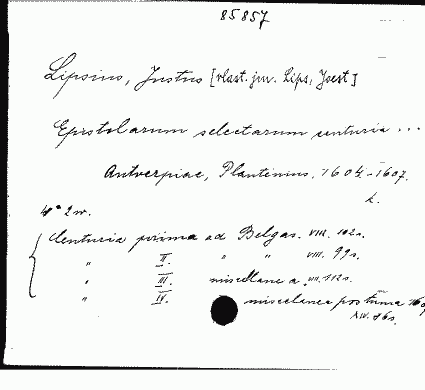 85857
Lipsius, Justus [vlast. jm. Lips, Joest]
Epistolarum selectarum centuria ...
Antverpiae, Plantinus, 1604-1607.
4° 2 w.
Centuria prima ad Belgas. VIII. 102 s.
" II. " " VIII. 99 s.
" III. miscellanea. VIII. 112 s.
" IV. miscellanea postuma 160
XIV. 86 s.